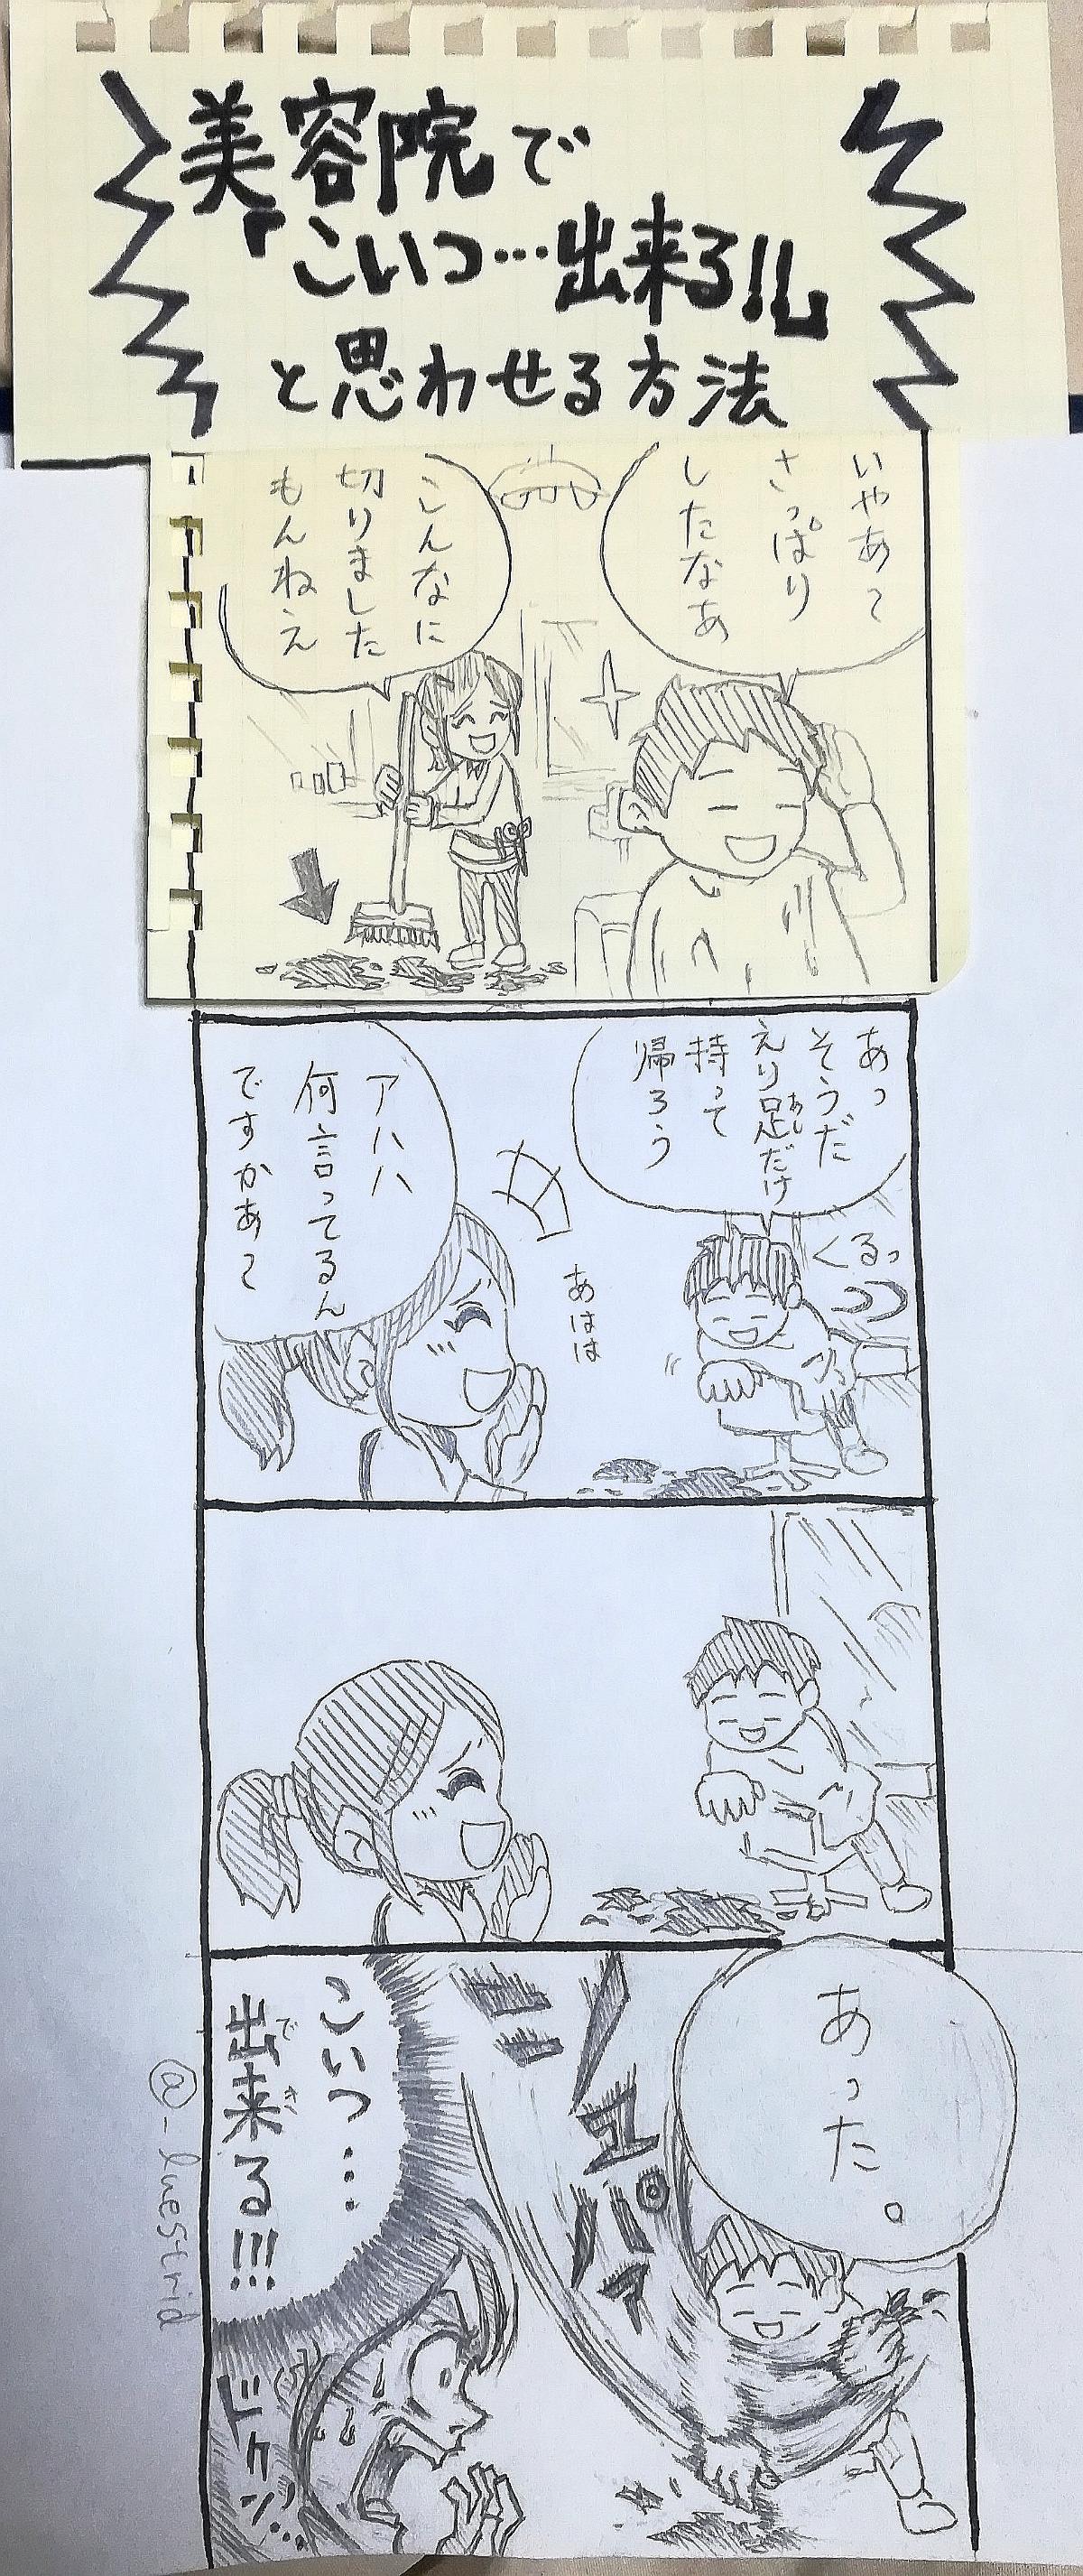 美容院で
「こいつ…出来る!!」
と思わせる方法
いやあ〜
さっぱり
したなあ
こんなに
切りました
もんねえ
あっ
そうだ
えり足だけ
あし
持って
帰ろう
くるっ
あはは
アハハ
何言ってるん
ですかあ〜
あった。
シュパァ
こいつ…
出来る!!!
でき
ドクンッ…
@_luestrid